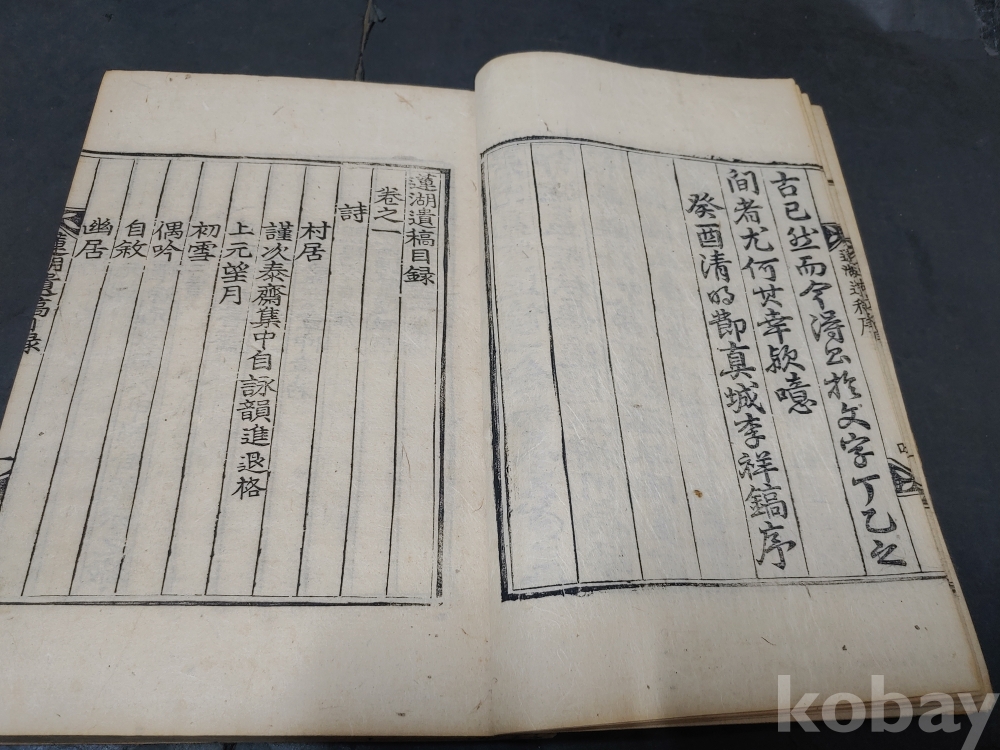 古已然而今得於文字丁乙之
間者尤何其幸歟噫
癸酉清明節真城李祥鎬序
蓮湖遺稿目録
卷之一
詩
村居
謹次泰齋集中自詠韻進退格
上元望月
初雪
偶吟
自敘
幽居
蓮湖遺稿目録
kobay